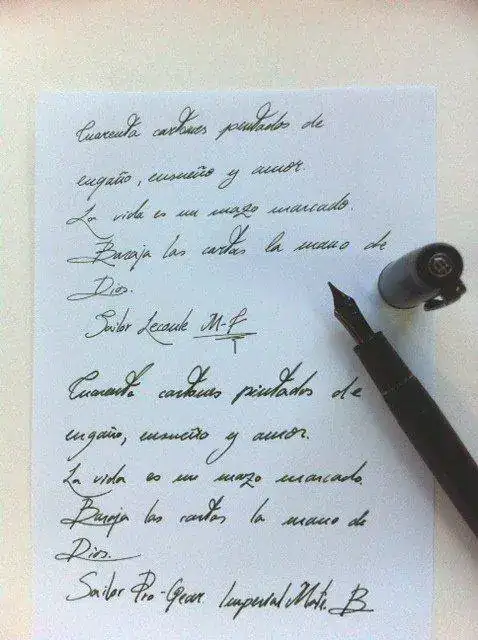 Cuarenta cartones pintados de
engaño, ensueño y amor
La vida es un mazo marcado.
Baraja las cartas la mano de
Dios.
Sailor Lecoule M-F
Cuarenta cartones pintados de
engaño, ensueño y amor.
La vida es un mazo marcado.
Baraja las cartas la mano de
Dios.
Sailor Pro-Gear Imperial B